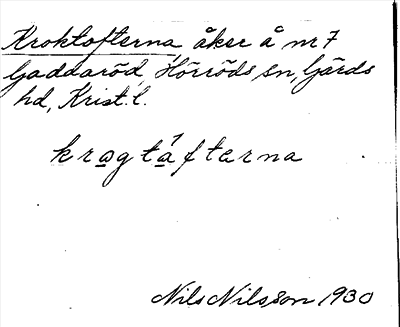 Kroktofterna, åker å nr 7
Gaddaröd, Hörröds sn, Gärds
hd, Krist. l.
kra̲gta̲´fterna
Nils Nilsson 1930